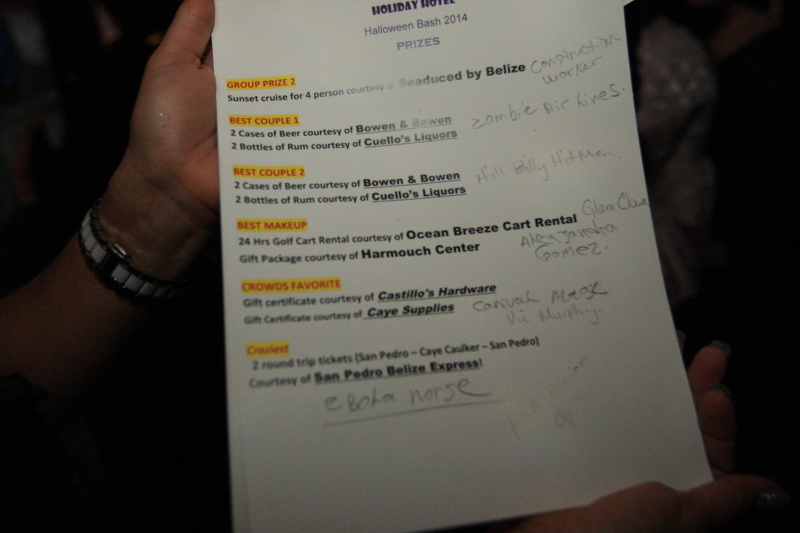 HOLIDAY HOTEL
Halloween Bash 2014
PRIZES
GROUP PRIZE 2
Sunset cruise for 4 person courtesy of Seaduced by Belize
Construction
worker
BEST COUPLE 1
2 Cases of Beer courtesy of Bowen & Bowen
2 Bottles of Rum courtesy of Cuello's Liquors
Zombie Air Lines.
BEST COUPLE 2
2 Cases of Beer courtesy of Bowen & Bowen
2 Bottles of Rum courtesy of Cuello's Liquors
Hill Billy Hit Men.
BEST MAKEUP
24 Hrs Golf Cart Rental courtesy of Ocean Breeze Cart Rental
Gift Package courtesy of Harmouch Center
Gomez.
CROWDS FAVORITE
Gift certificate courtesy of Castillo's Hardware
Gift Certificate courtesy of Caye Supplies
Vic Murphy.
Craziest
2 round trip tickets (San Pedro – Caye Caulker – San Pedro)
Courtesy of San Pedro Belize Express!
ebola norse